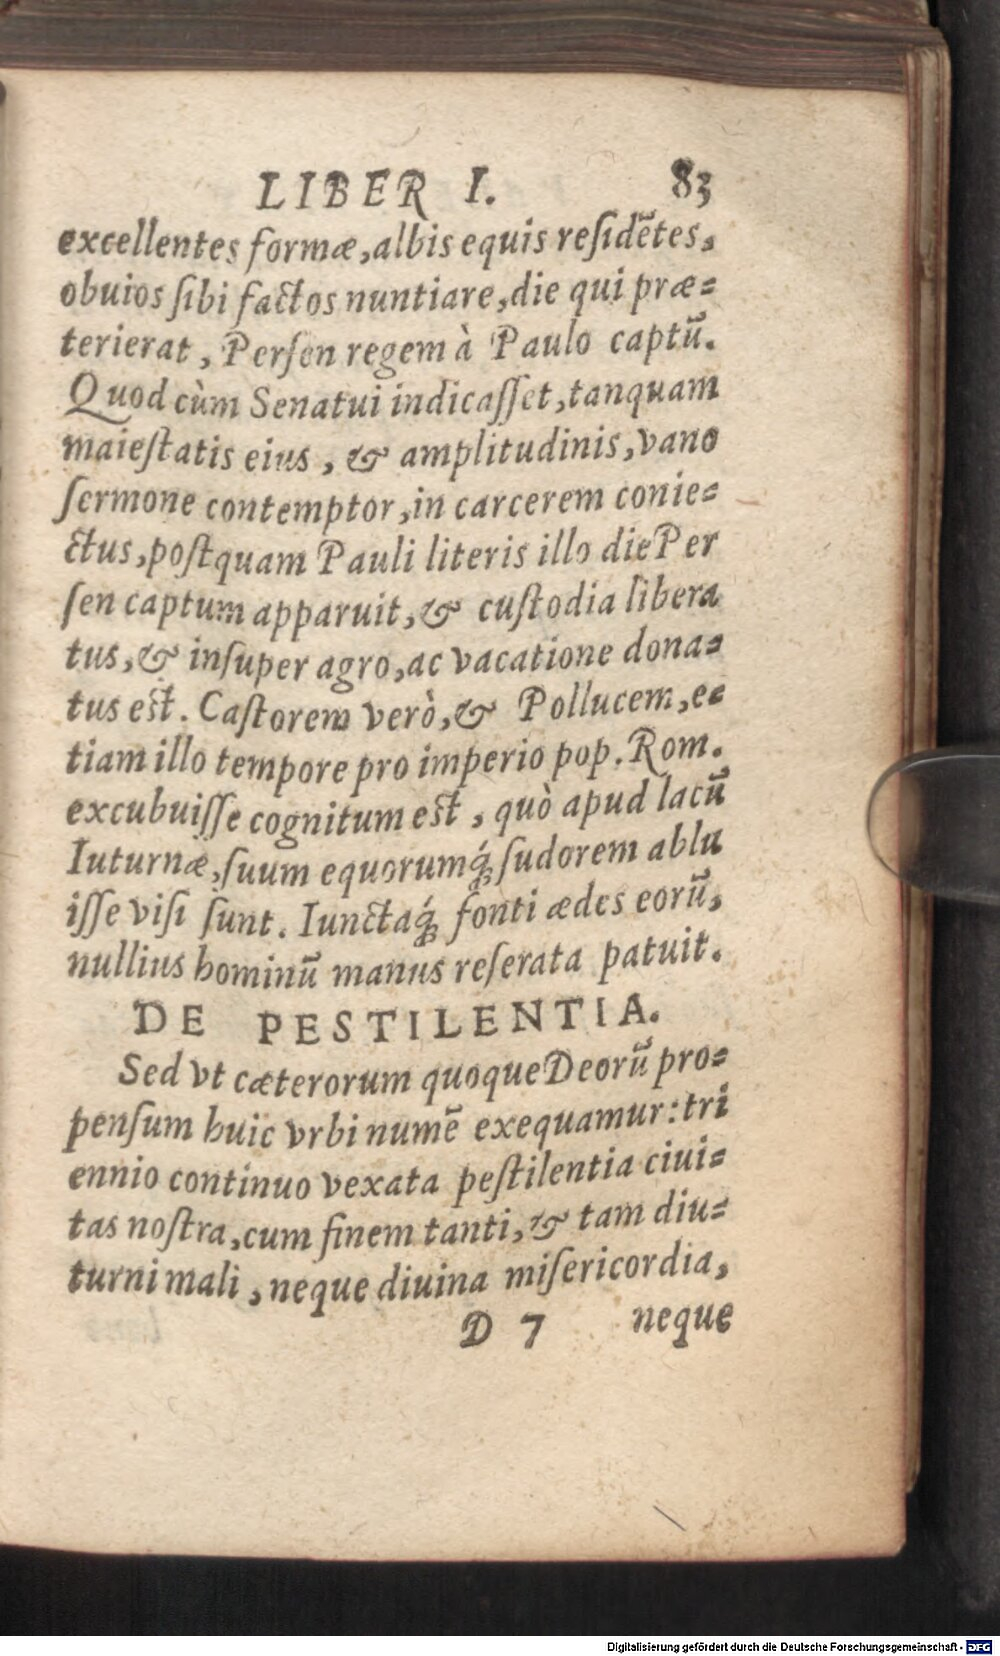 LIBER I. 83
excellentes formæ, albis equis reſidẽtes,
obuios ſibi factos nuntiare, die qui præ=
terierat, Perſen regem à Paulo captũ.
Quod cùm Senatui indicaſſet, tanquam
maieſtatis eius, & amplitudinis, vano
ſermone contemptor, in carcerem conie=
ctus, poſtquam Pauli literis illo die Per
ſen captum apparuit, & cuſtodia libera
tus, & inſuper agro, ac vacatione dona=
tus eſt. Caſtorem verò, & Pollucem, e=
tiam illo tempore pro imperio pop. Rom.
excubuiſſe cognitum eſt, quò apud lacũ
Iuturnæ, ſuum equorumq́; ſudorem ablu
iſſe viſi ſunt. Iunctaq́; fonti ædes eorũ,
nullius hominũ manus reſerata patuit.
DE PESTILENTIA.
Sed vt cæterorum quoque Deorũ pro=
penſum huic vrbi numẽ exequamur: tri
ennio continuo vexata peſtilentia ciui=
tas noſtra, cum finem tanti, & tam diu=
turni mali, neque diuina miſericordia,
D 7 neque
Digitalisierung gefördert durch die Deutsche Forschungsgemeinschaft - DFG